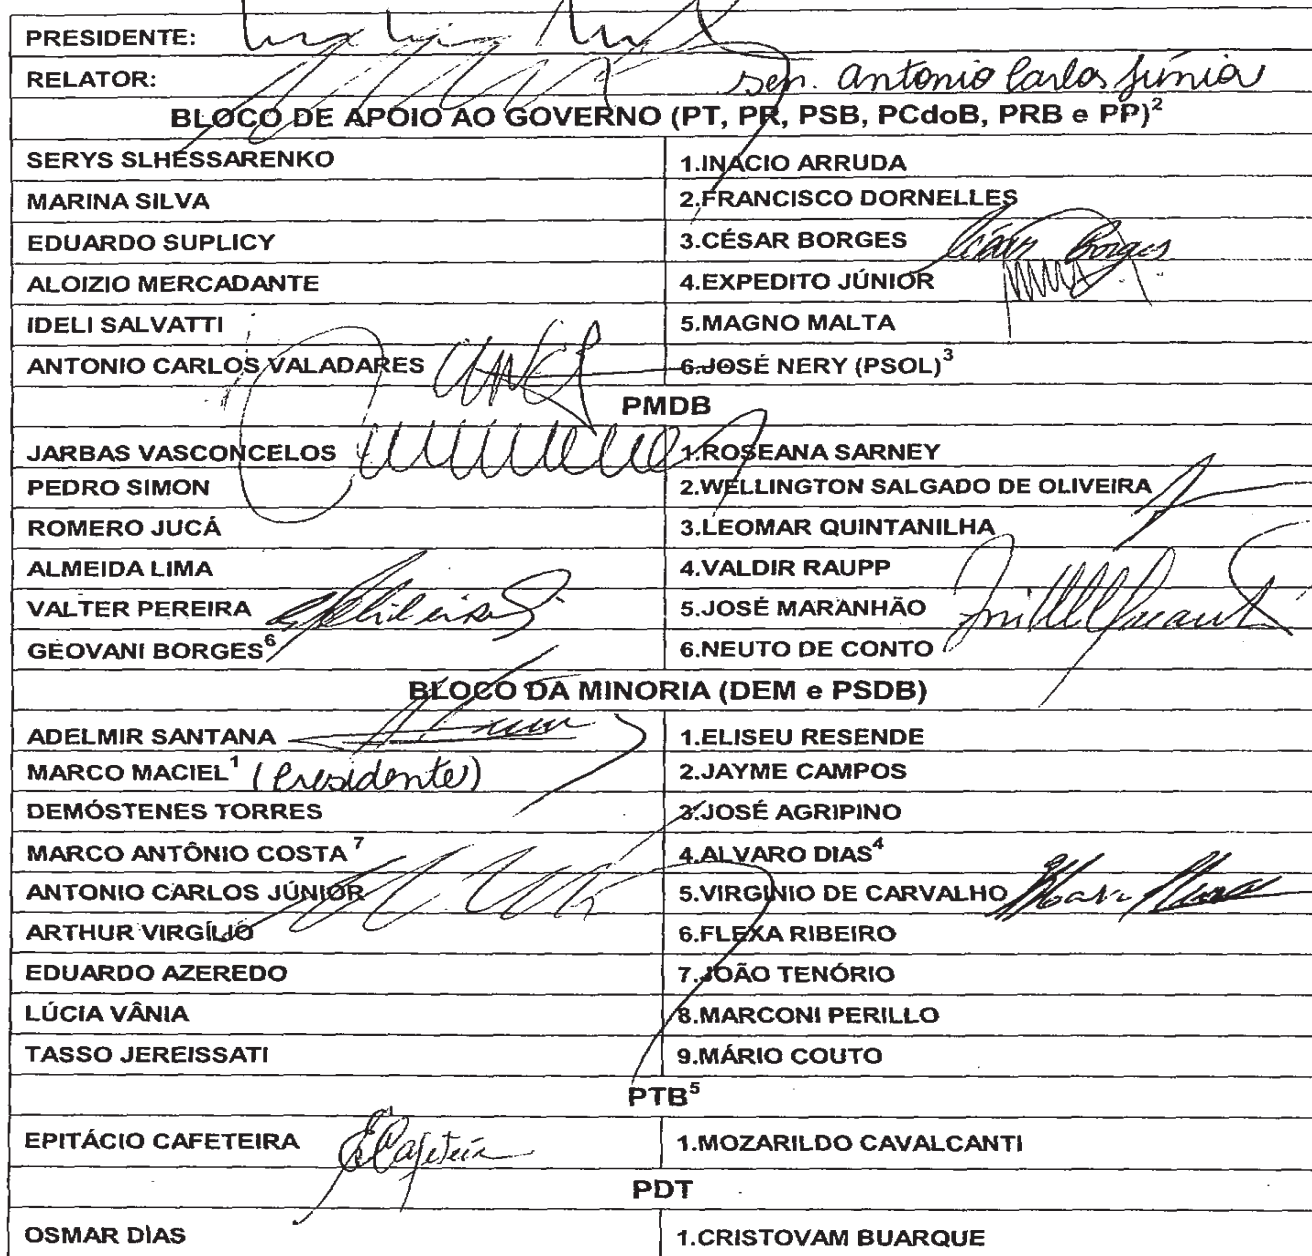 PRESIDENTE:
RELATOR: Sen. Antonio Carlos Júnior
BLOCO DE APOIO AO GOVERNO (PT, PR, PSB, PCdoB, PRB e PP)²
SERYS SLHESSARENKO 1.INÁCIO ARRUDA
MARINA SILVA 2.FRANCISCO DORNELLES
EDUARDO SUPLICY 3.CÉSAR BORGES César Borges
ALOIZIO MERCADANTE 4.EXPEDITO JÚNIOR
IDELI SALVATTI 5.MAGNO MALTA
ANTONIO CARLOS VALADARES 6.JOSÉ NERY (PSOL)³
PMDB
JARBAS VASCONCELOS 1.ROSEANA SARNEY
PEDRO SIMON 2.WELLINGTON SALGADO DE OLIVEIRA
ROMERO JUCÁ 3.LEOMAR QUINTANILHA
ALMEIDA LIMA 4.VALDIR RAUPP
VALTER PEREIRA 5.JOSÉ MARANHÃO
GEOVANI BORGES⁶ 6.NEUTO DE CONTO
BLOCO DA MINORIA (DEM e PSDB)
ADELMIR SANTANA 1.ELISEU RESENDE
MARCO MACIEL¹ (Presidente) 2.JAYME CAMPOS
DEMÓSTENES TORRES 3.JOSÉ AGRIPINO
MARCO ANTÔNIO COSTA ⁷ 4.ALVARO DIAS⁴
ANTONIO CARLOS JÚNIOR 5.VIRGINIO DE CARVALHO
ARTHUR VIRGÍLIO 6.FLEXA RIBEIRO
EDUARDO AZEREDO 7.JOÃO TENÓRIO
LÚCIA VÂNIA 8.MARCONI PERILLO
TASSO JEREISSATI 9.MÁRIO COUTO
PTB⁵
EPITÁCIO CAFETEIRA ECafeteira 1.MOZARILDO CAVALCANTI
PDT
OSMAR DIAS 1.CRISTOVAM BUARQUE